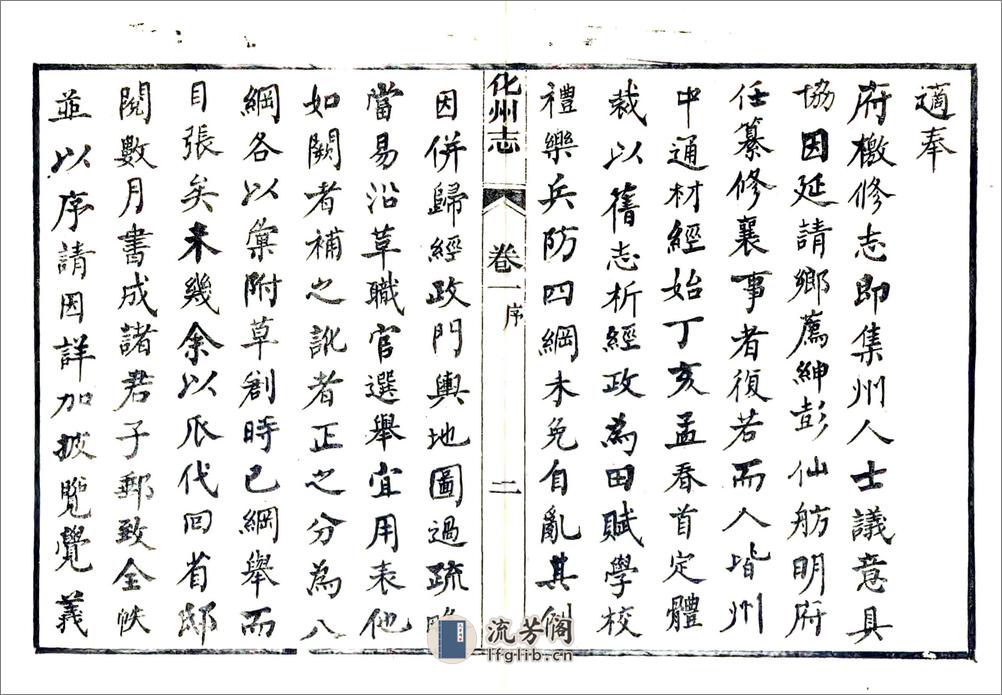 適奉
府檄修志即集州人士議意具
協因延請鄉薦紳彭仙舫明府
任纂修襄事者復若而人皆州
中通材經始丁亥孟春首定體
裁以舊志析經政為田賦學校
禮樂兵防四綱未免自亂其例
化州志
卷一序
二
因併歸經政門輿地圖過疏略
當易沿革職官選舉宜用表他
如闕者補之訛者正之分為八
綱各以彙附草創時已綱舉而
目張矣未幾余以瓜代回省邸
閱數月書成諸君子郵致全帙
並以序請因詳加披覽覺義
流芳閣
lfglib.cn